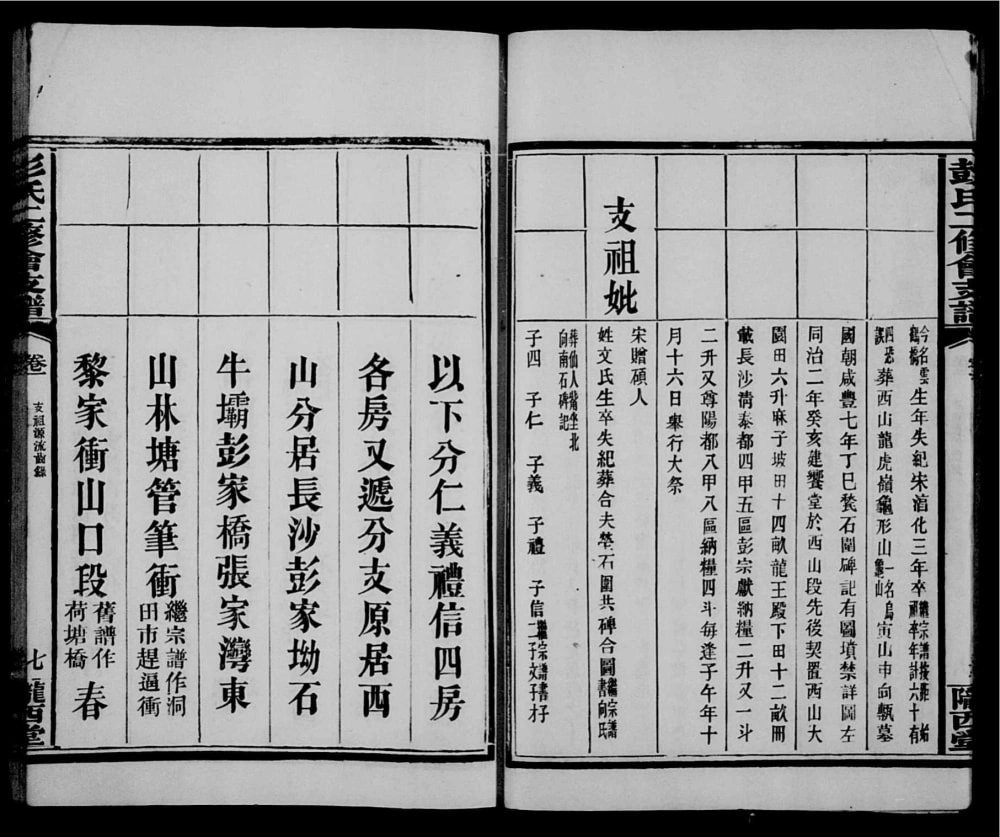 彭氏二修會支譜
隴西堂
今名雲
鶴橋
生年失紀宋淳化三年卒
四恐
誤
葬西山龍虎嶺龜形山一名烏
龜山
寅山申向甎墓
國朝咸豐七年丁巳甃石圍碑記有圖墳禁詳圖左
同治二年癸亥建饗堂於西山段先後契置西山大
園田六升麻子坡田十四畝龍王殿下田十二畝冊
載長沙清泰都四甲五區彭宗獻納糧二升又一斗
二升又尊陽都八甲八區納糧四斗每逢子午年十
月十六日舉行大祭
支祖妣
宋贈碩人
姓文氏生卒失紀葬合夫塋石圍共碑合圖
繼宗譜
書向氏
葬仙人背坐北
向南石碑記
子四 子仁 子義 子禮 子信
以下分仁義禮信四房
各房又遞分支原居西
山分居長沙彭家坳石
牛壩彭家橋張家灣東
山林塘管筆衝
繼宗譜作洞
田市趕逼衝
黎家衝山口段
舊譜作
荷塘橋
春
彭氏二修會支譜
卷一
支祖源流齒錄
七
隴西堂